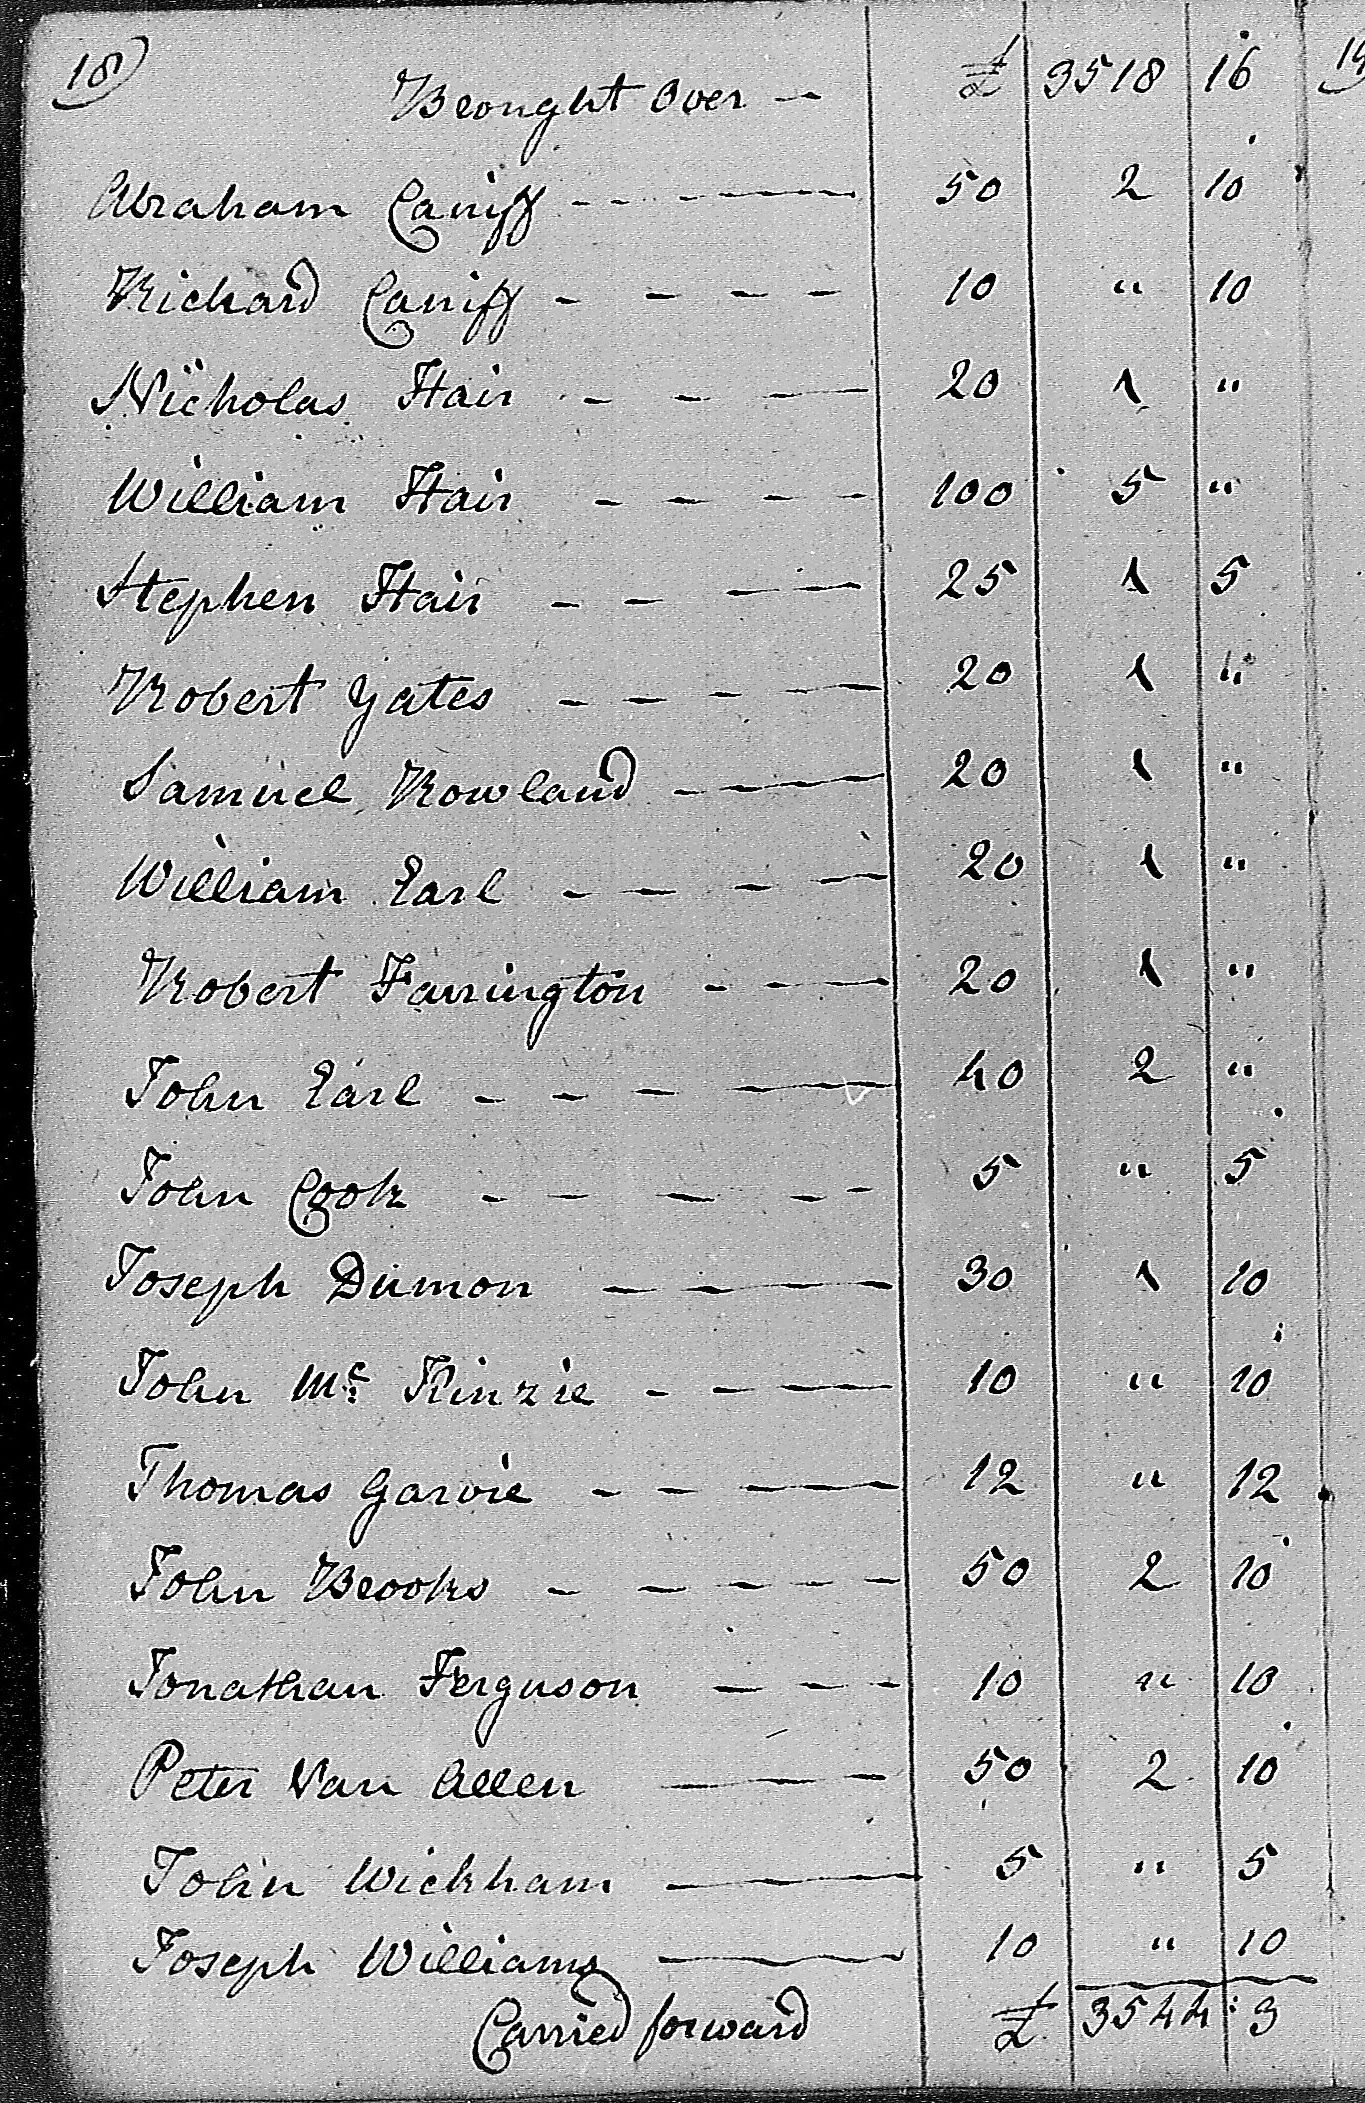 18)
Brought Over — £ 3518 16
Abraham Caniff 50 2 10
Richard Caniff 10 " 10
Nicholas Hair 20 1 "
William Hair 100 5 "
Stephen Hair 25 1 5
Robert Yates 20 1 "
Samuel Rowland 20 1 "
William Earl 20 1 "
Robert Farrington 20 1 "
John Earl 40 2 "
John Cook 5 " 5
Joseph Dumon 30 1 10
John Mc. Kinzie 10 " 10
Thomas Garvie 12 " 12
John Brooks 50 2 10
Jonathan Ferguson 10 " 10
Peter Van Allen 50 2 10
John Wickham 5 " 5
Joseph Williams 10 " 10
Carried forward £ 3544 : 3